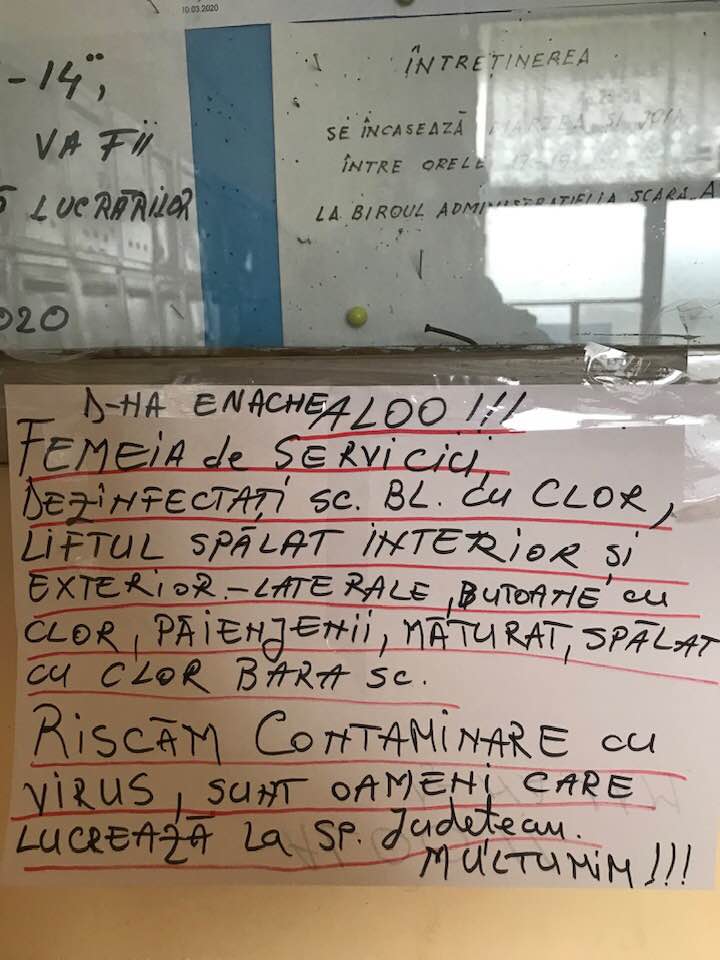 10.03.2020
-14",
VA FII
LUCRĂRILOR
2020
ÎNTREȚINEREA
SE ÎNCASEAZĂ MARȚEA ȘI JOIA
ÎNTRE ORELE 17-19
LA BIROUL ADMINISTRAȚIEI LA SCARA A
D-NA ENACHE ALOO !!!
FEMEIA de SERVICIU,
DEZINFECTAȚI SC. BL. CU CLOR,
LIFTUL SPĂLAT INTERIOR și
EXTERIOR.-LATERALE, BUTOANE cu
CLOR, PĂIENJENII, MĂTURAT, SPĂLAT
CU CLOR BARA SC.
RISCĂM CONTAMINARE cu
VIRUS, SUNT OAMENI CARE
LUCREAZĂ La SP. Județean.
MULȚUMIM !!!